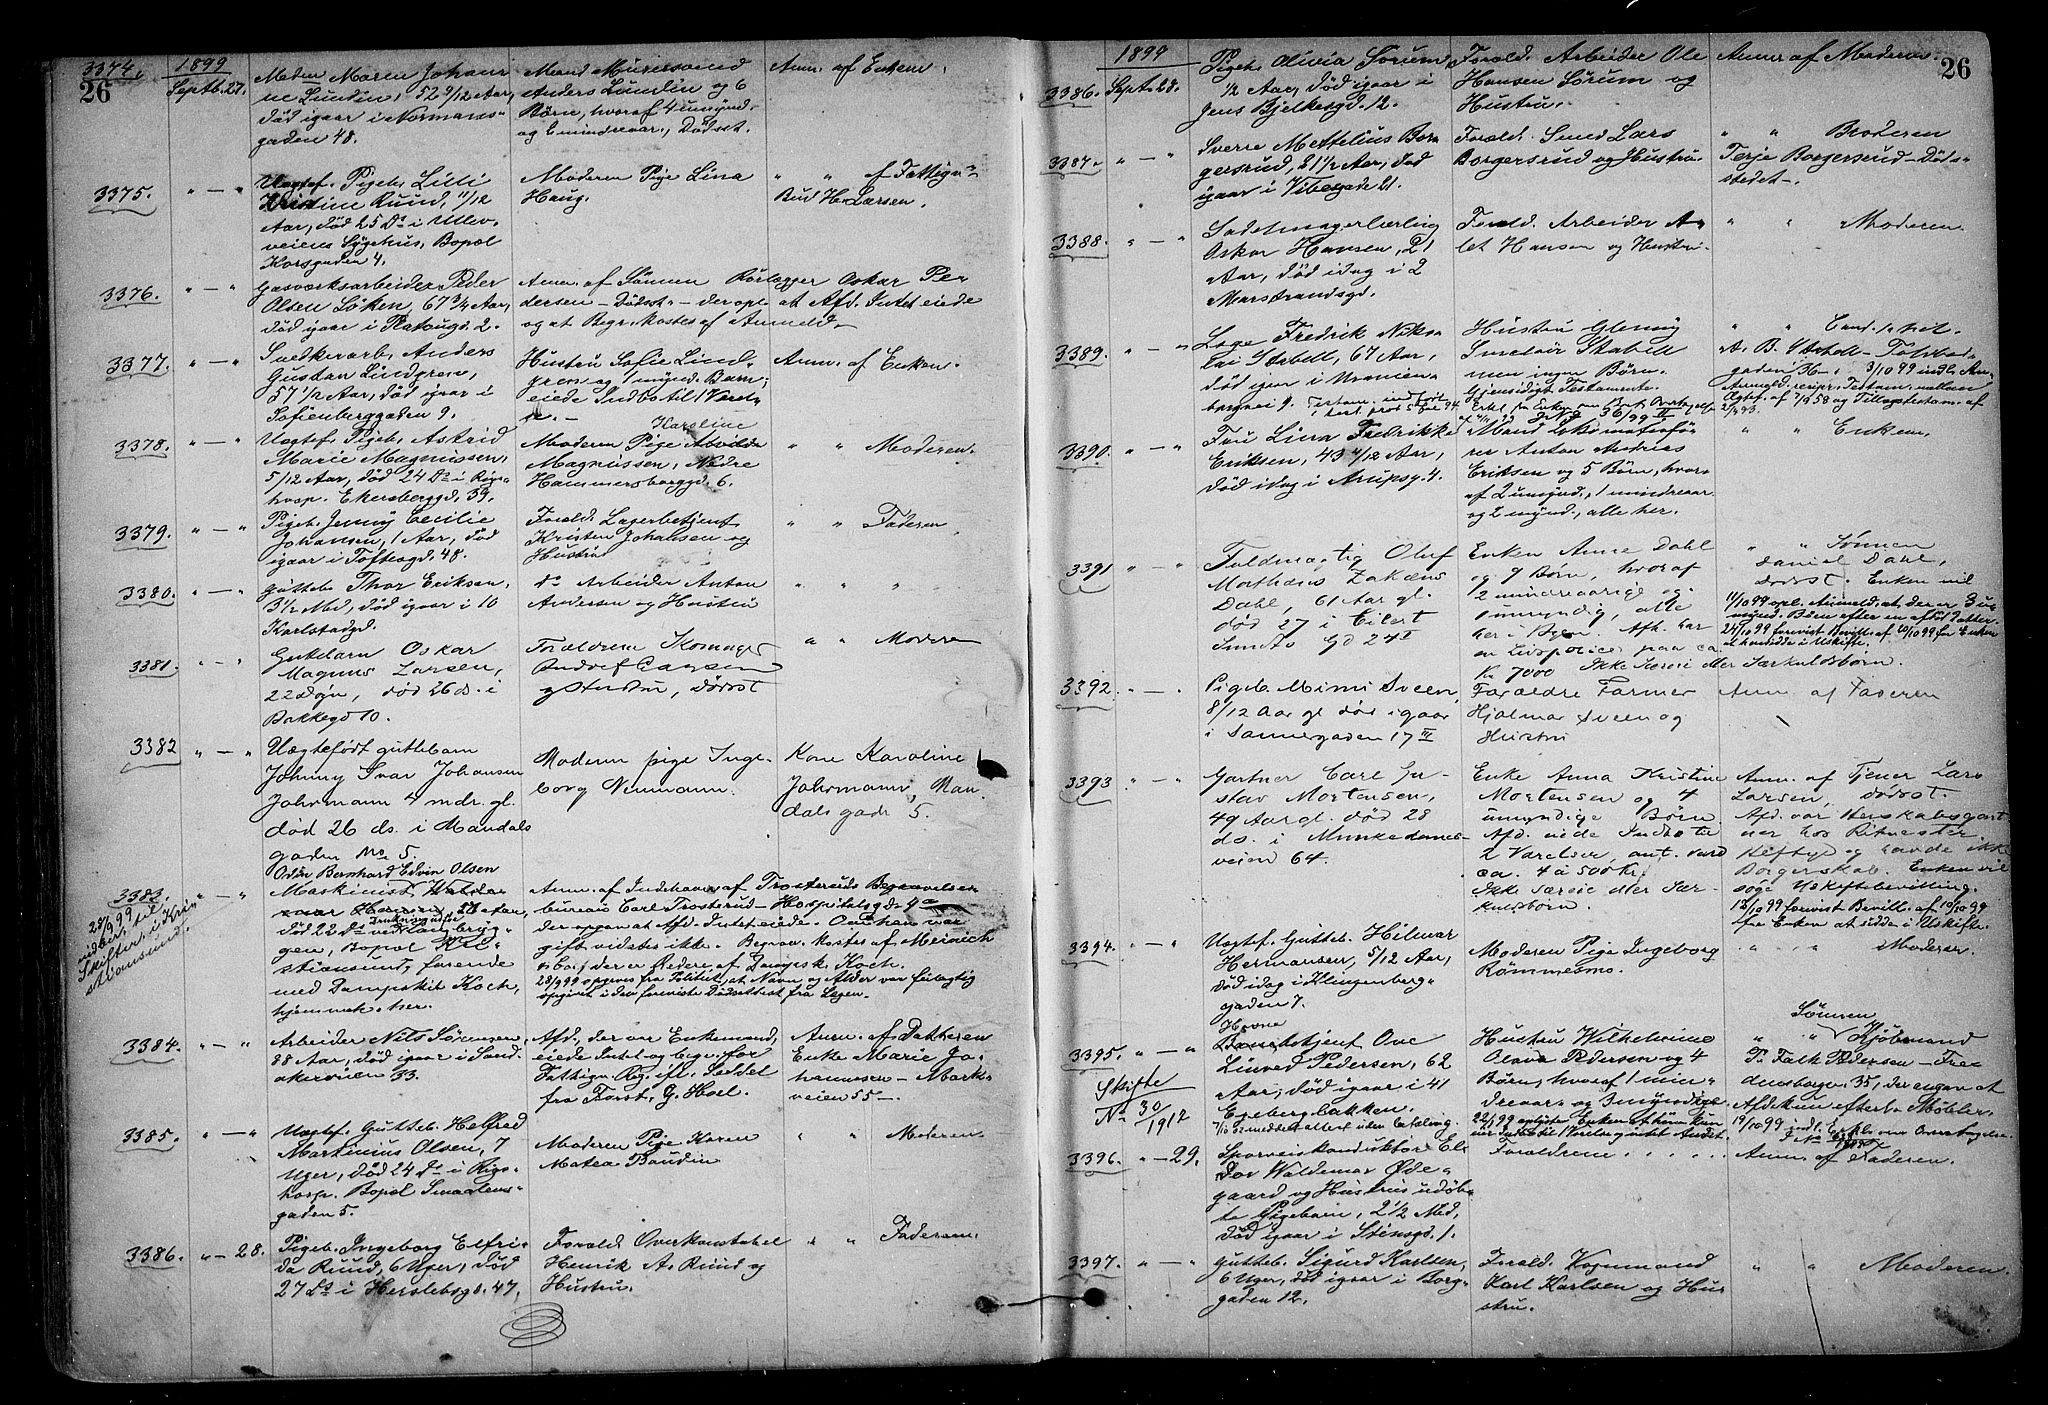 3374. 1899 Septb. 27.
26
Maden Maren Johan-
ne Lundin, 52 9/12 Aar,
død igaar i Normans-
gaden 48.
Mand Murersvend
Anders Lundin og 6
Børn, hvoraf 4 umynd.
og 2 mindreaar., Dødsst.
Anm. af Enken.
3375. " — "
Uægtef. Pigeb. Lilli
Kristine Ruud, 11/12
Aar, død 25 Ds i Ullev.
veiens Sygehus, Bopæl
Korsgaden 4.
Moderen Pige Lina
Haug.
" " af Fattigv.
Bud H. Larsen.
3376. " — "
Gasværksarbeider Peder
Olsen Løken, 67 3/4 Aar,
død igaar i Platougd. 2.
Anm. af Sønnen Rørlægger Oskar Pe-
dersen – Dødsst. – der opl. at Afd. Intet eiede
og at Begr. kostes af Anmeld.
3377. " — "
Snedkerarb. Anders
Gustav Lindgren,
57 1/2 Aar, død igaar i
Sofienberggaden 9.
Hustru Sofie Lind-
gren og 1 mynd. Barn;
eiede Indbo til 1 Værel-
se. –
Anm. af Enken.
3378. " — "
Uægtef. Pigeb. Astrid
Marie Magnussen,
5/12 Aar, død 24 Ds i Rigs-
hosp. Ekersberggd. 39.
Karoline
Moderen Pige Alvilde
Magnussen, Nedre
Hammersborggd. 6.
" " Moderen.
3379. " — "
Pigeb. Jenny Cecilie
Johansen, 1 Aar, død
igaar i Toftesgd. 48.
Foræld. Lagerbetjent
Kristen Johansen og
Hustru
" " Faderen
3380. " — "
Gutteb. Thor Eriksen,
3 1/2 Md, død igaar i 10
Karlstadgd.
Ds Arbeider Anton
Andersen og Hustru
" " "
3381. " — "
Guttebarn Oskar
Magnus Larsen,
22 Døgn, død 26 ds. i
Bakkegd 10.
Forældrene
og Hustru, Dødsst
" " Moderen
3382 " — "
Uægtefødt guttebarn
Johnny Ivar Johansen
Jahrmann 4 mdr. gl.
død 26 ds. i Mandals
gaden No 5.
Moderen pige Inge-
borg Neumann.
Kone Karoline
Jahrmann, Man-
dals gade 5.
3383. " — "
28/9 99
Skifter. i Kri-
stiansund.
Odin Bernhard Edvin Olsen
Maskinist
død 22 Ds ved
gen, Bopæl Kri-
stiansund, farende
med Dampskib Koch,
hjemmeh. her.
Anm. af Indehaver af Trosteruds Begravelses
bureau Carl Trosterud – Hospitalsgd. 9a
der opgav at Afd. Intet eiede. Om han var
gift vidstes ikke. Begrav. kostes af Meinich
& Co., der er Redere af Dampsk. Koch.
28/9 99 opgives fra Politiet, at Navn og Alder var feilagtig
opgivet i den foreviste Dødsattest fra Lægen.
3384. " — "
Arbeider Nils Sørensen,
88 Aar, død igaar i Sand-
akerveien 33.
Afd., der var Enkemand,
eiede Intet og begr. for
Fattigv. Reg. ifl. Seddel
fra Forst. G. Hoel.
Anm. af Datteren
Enke Marie Jo-
hannesen – Mark-
veien 55 –.
3385. " — "
Uægtef. Gutteb. Helfred
Martinius Olsen, 7
Uger, død 24 Ds i Rigs-
hosp. Bopæl Smaalens-
gaden 5.
Moderen Pige Karen
Matea Baudin
" " Moderen.
3386. " – 28.
Pigeb. Ingeborg Elfri-
da Ruud, 6 Uger, død
27 Ds i Herslebsgd. 47.
Foræld. Overkonstabel
Henrik A. Ruud og
Hustru.
" " Faderen.
1899
26
3386. Sept. 28.
Pigeb. Olivia Sørum,
1/2 Aar, død igaar i
Jens Bjelkesgd. 12.
Foræld. Arbeider Ole
Hansen Sørum og
Hustru.
Anm. af Moderen.
3387. " — "
Sverre Mettelius Bor-
gersrud, 21 1/2 Aar, død
igaar i Vibesgade 21.
Foræld. Smed Lars
Borgersrud og Hustru.
" " Broderen
Terje Borgersrud – Døds-
stedet –.
3388. " — "
Sadelmagerlærling
Oskar Hansen, 21
Aar, død idag i 2
Marstrandsgd.
Foræld. Arbeider A-
let Hansen og Hustru.
" " Moderen.
3389. " — "
Læge Fredrik Niko-
lai Stabell, 67 Aar,
død igaar i Uranien-
borgvei 9.
Hustru Glenny
Sinclair Stabell
men ingen Børn.
Gjensidigt Testamente.
" " Cand.
A. B. Stabell – Toldbod-
gaden 36 –. 3/10 99 indl. An-
meld. recipr. Testam. mellem
Ægtef. af 7/12 58 og Tillægstestam. af
3390. " — "
Fru Lina Fredrikke
Eriksen, 43 4/12 Aar,
død idag i Arupsg. 4.
Mand
rer Anton Andreas
Eriksen og 5 Børn, hvor-
af 2 umynd., 1 mindreaar.
og 2 mynd., alle her.
" " Enkem.
3391 " — "
Fuldmægtig Oluf
Mathæus Zakæus
Dahl, 61 Aar gl.
død 27 i Eilert
Sundts Gd 24 II
Enken Anne Dahl
og 9 Børn, hvoraf
2 mindreaarige og
umyndig, alle
her i Byen. Afd. har
en Livspolice paa ca.
Kr. 7000 Ikke Særeie eller Særkuldsbørn.
" " Sønnen
Daniel Dahl,
dødsst. Enken vil
11/10 99 opl. Anmeld. at der er 3 u-
mynd. Børn efter en afdød Datter.
24/10 99 forevist Bevill. af 20/10 99 for Enken
at hensidde i Uskifte.
3392. " — "
Pigeb. Mimi Sveen,
8/12 Aar gl død igaar
i Sannergaden 17 III
Forældre Farmer
Hjalmar Sveen og
Hustru
Anm. af Faderen
3393 " — "
Gartner Carl Gu-
stav Mortensen,
49 Aar gl. død 28
ds. i Munkedams-
veien 64.
Enke Anna Kristine
Mortensen og 4
umyndige Børn
Afd. eiede Indbo til
2 Værelser, ant. værd
ca. 4 à 500 Kr.
Ikke Særeie eller Sær-
kuldsbørn.
Anm. af Tjener Lars
Larsen, dødsst.
Afd. var Herskabsgart
ner hos Ritmester
Kleftye og havde ikke
Borgerskab. Enken vil
søge Uskiftebevilling.
13/10 99 forevist Bevill. af 10/10 99
for Enken at sidde i Uskifte.
3394. " — "
Uægtef. Gutteb. Hilmar
Hermansen, 5/12 Aar,
død idag i Klingenberg-
gaden 7.
Moderen Pige Ingeborg
Rømmesmo.
" " Moderen.
3395. " — "
Skifte
No 30/1912
Havne
betjent Ove
Linved Pedersen, 62
Aar, død igaar i 41
Egebergbakken.
Hustru Wilhelmine
Olava Pedersen og 4
Børn, hvoraf 1 min-
dreaar. og 3 mynd.
Sønnen
" " Kjøbmand
P. Falk Pedersen – Fre-
densborgv. 35, der opgav at
Afd. kun efterl. Møbler.
3396. " – 29.
Sporveiskonduktør El-
dor Waldemar Øde-
gaard og Hustrus udøb-
te Pigebarn, 2 1/2 Md,
død igaar i Stensgd. 1.
Forældrene . . . . . .
Anm. af Faderen.
3397. " — "
Gutteb. Sigurd Karlsen,
6 Uger, død igaar i Borg-
gaden 12.
Foræld. Vognmand
Karl Karlsen og Hu-
stru.
" " Moderen.